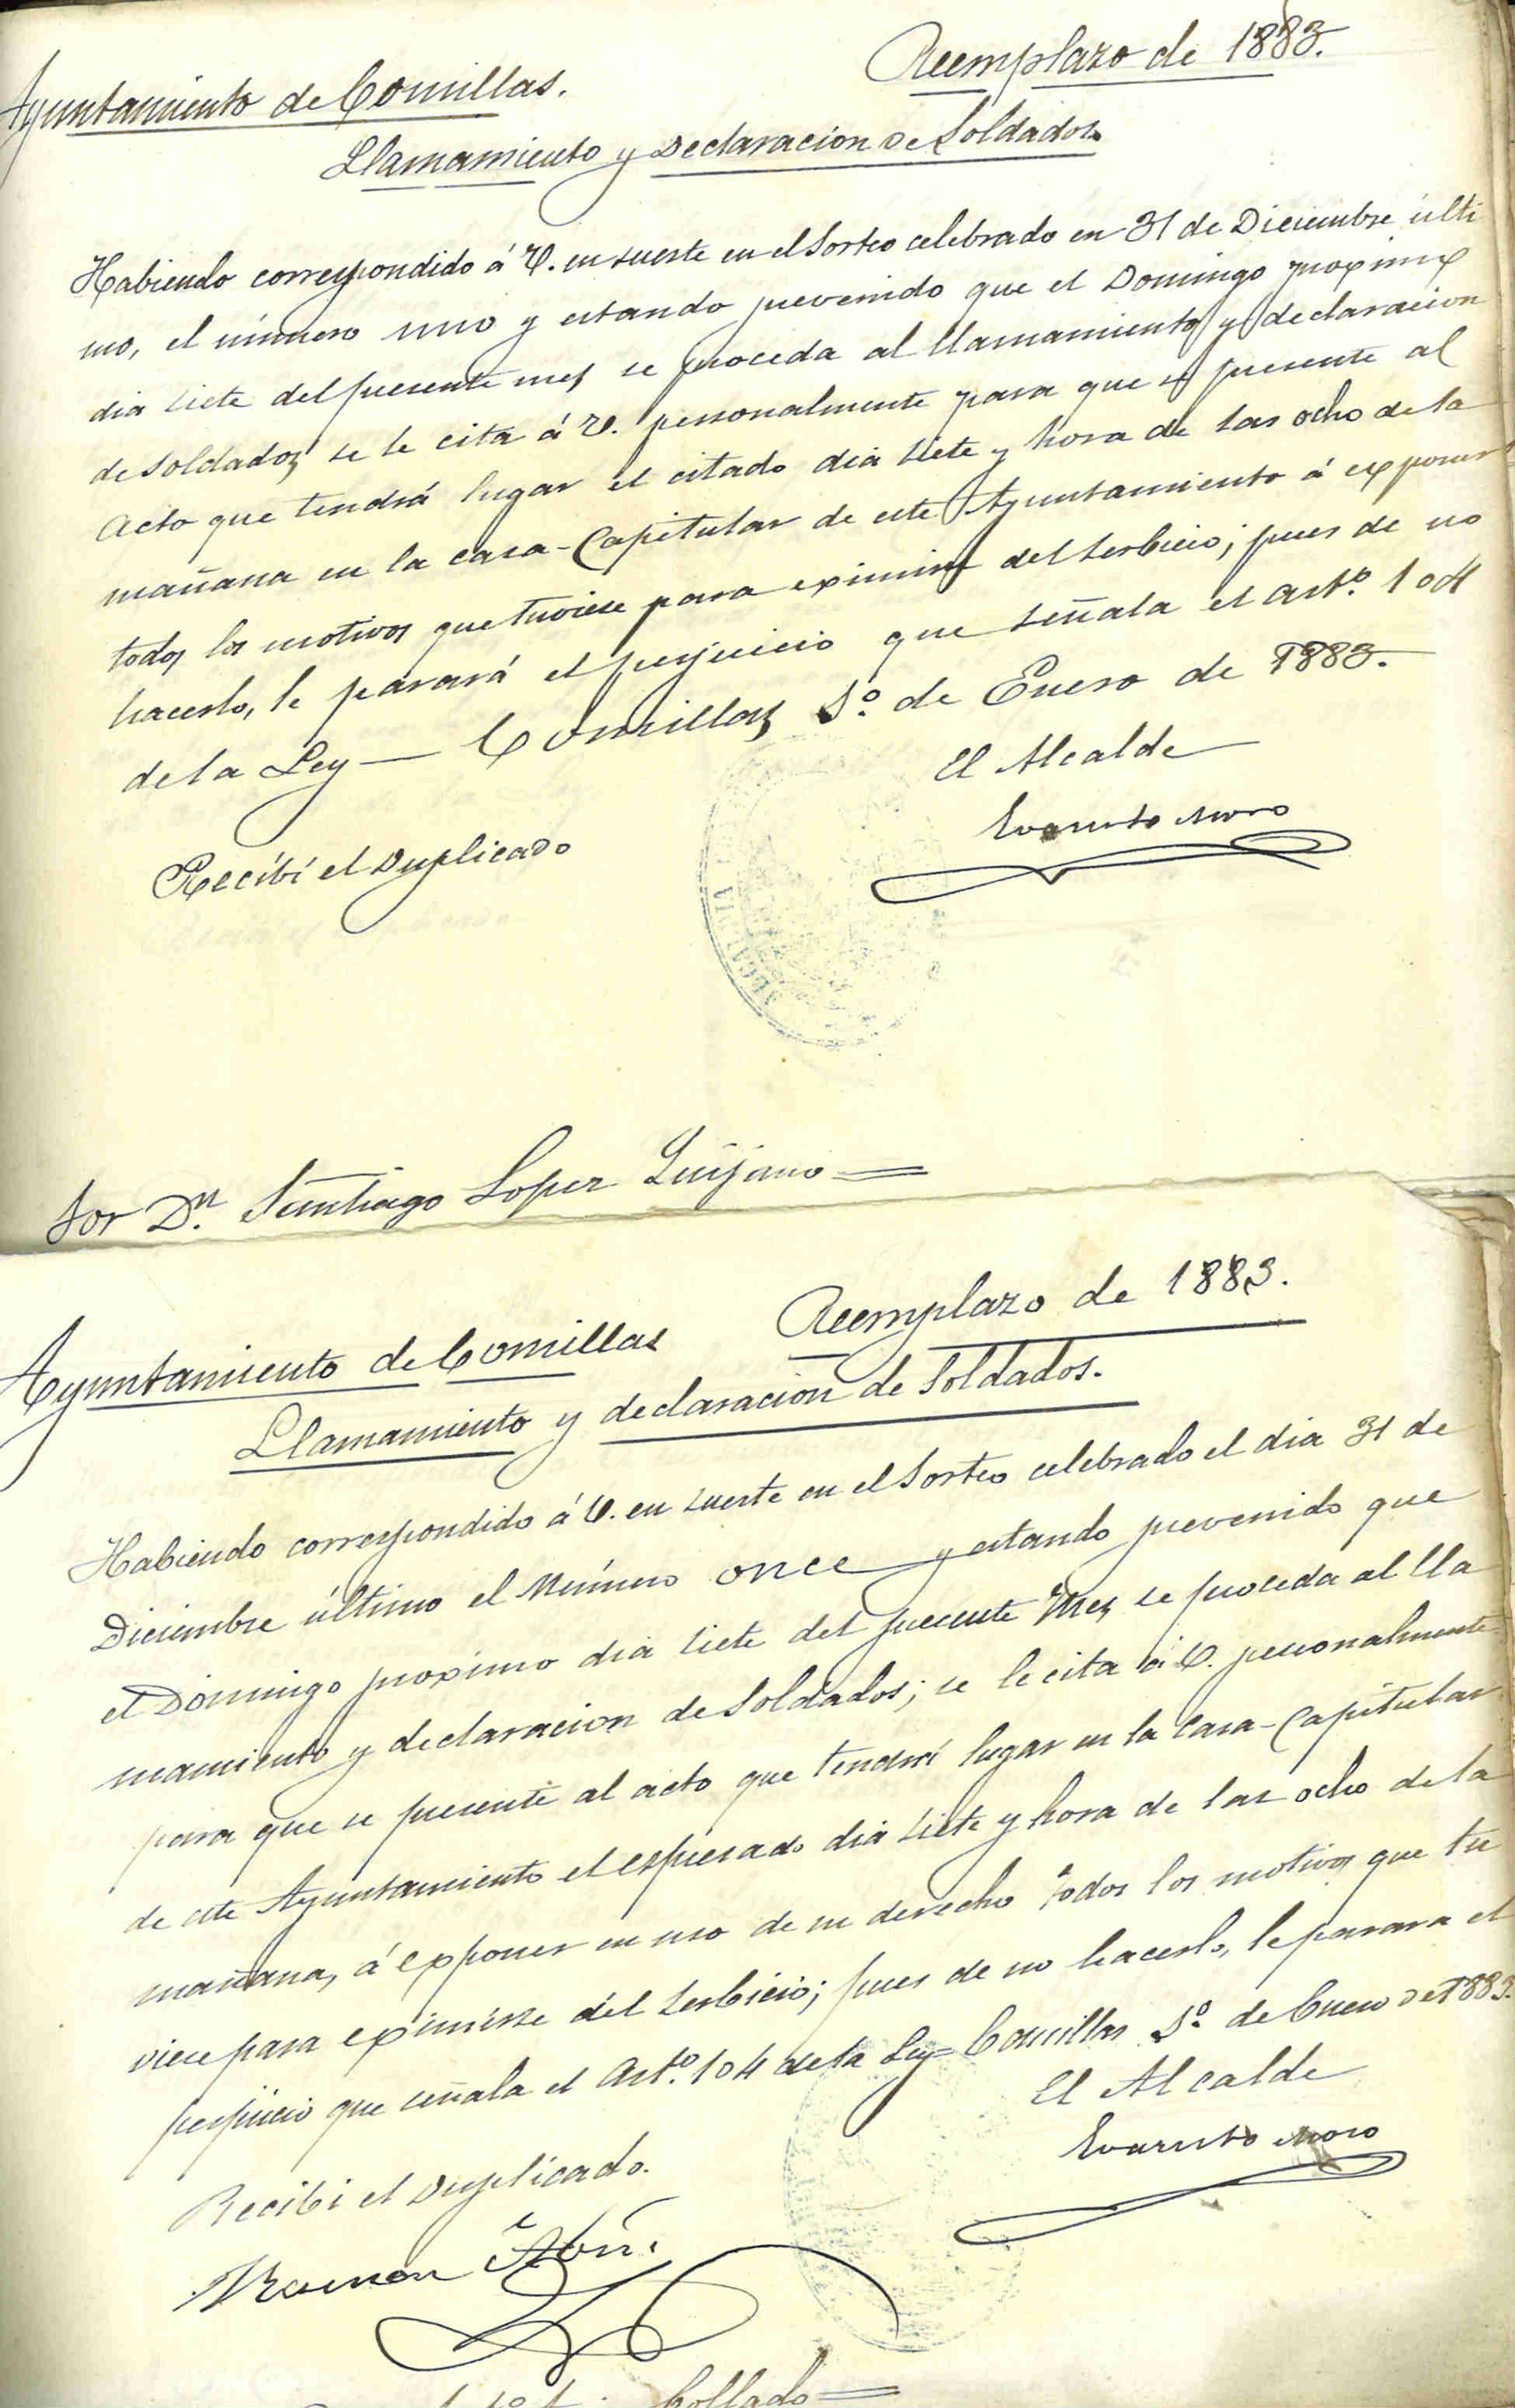 Ayuntamiento de Comillas.
Reemplazo de 1883.
Llamamiento y Declaracion de Soldados.
Habiendo correspondido á V. en suerte en el Sorteo celebrado en 31 de Diciembre últi
mo, el número uno y estando prevenido que el Domingo proximo
dia siete del presente mes se proceda al llamamiento y declaracion
de soldados, se le cita á V. personalmente para que se presente al
Acto que tendrá lugar el citado dia siete y hora de las ocho de la
mañana en la casa-Capitular de este Ayuntamiento á exponer
todos los motivos que tuviese para eximirse del Serbicio; pues de no
hacerlo, le parará el perjuicio que señala el artº. 104
de la Ley — Comillas 1º. de Enero de 1883.
El Alcalde
Evaristo Moro
Recibí el Duplicado
Sor Dn. Santiago Lopez Quijano =
Ayuntamiento de Comillas
Reemplazo de 1883.
Llamamiento y declaracion de Soldados.
Habiendo correspondido á V. en suerte en el Sorteo celebrado el dia 31 de
Diciembre último el Número once y estando prevenido que
el Domingo proximo dia siete del presente Mes, se proceda al lla
mamiento y declaracion de Soldados; se le cita á V. personalmente
para que se presente al acto que tendrá lugar en la Casa-Capitular
de este Ayuntamiento el espresado dia siete y hora de las ocho de la
mañana, á exponer en uso de su derecho todos los motivos que tu
viese para eximirse del Serbicio; pues de no hacerlo, le parara el
perjuicio que señala el Artº. 104 de la Ley = Comillas 1º. de Enero de 1883.
El Alcalde
Evaristo Moro
Recibi el Duplicado.
Ramon
Collado =